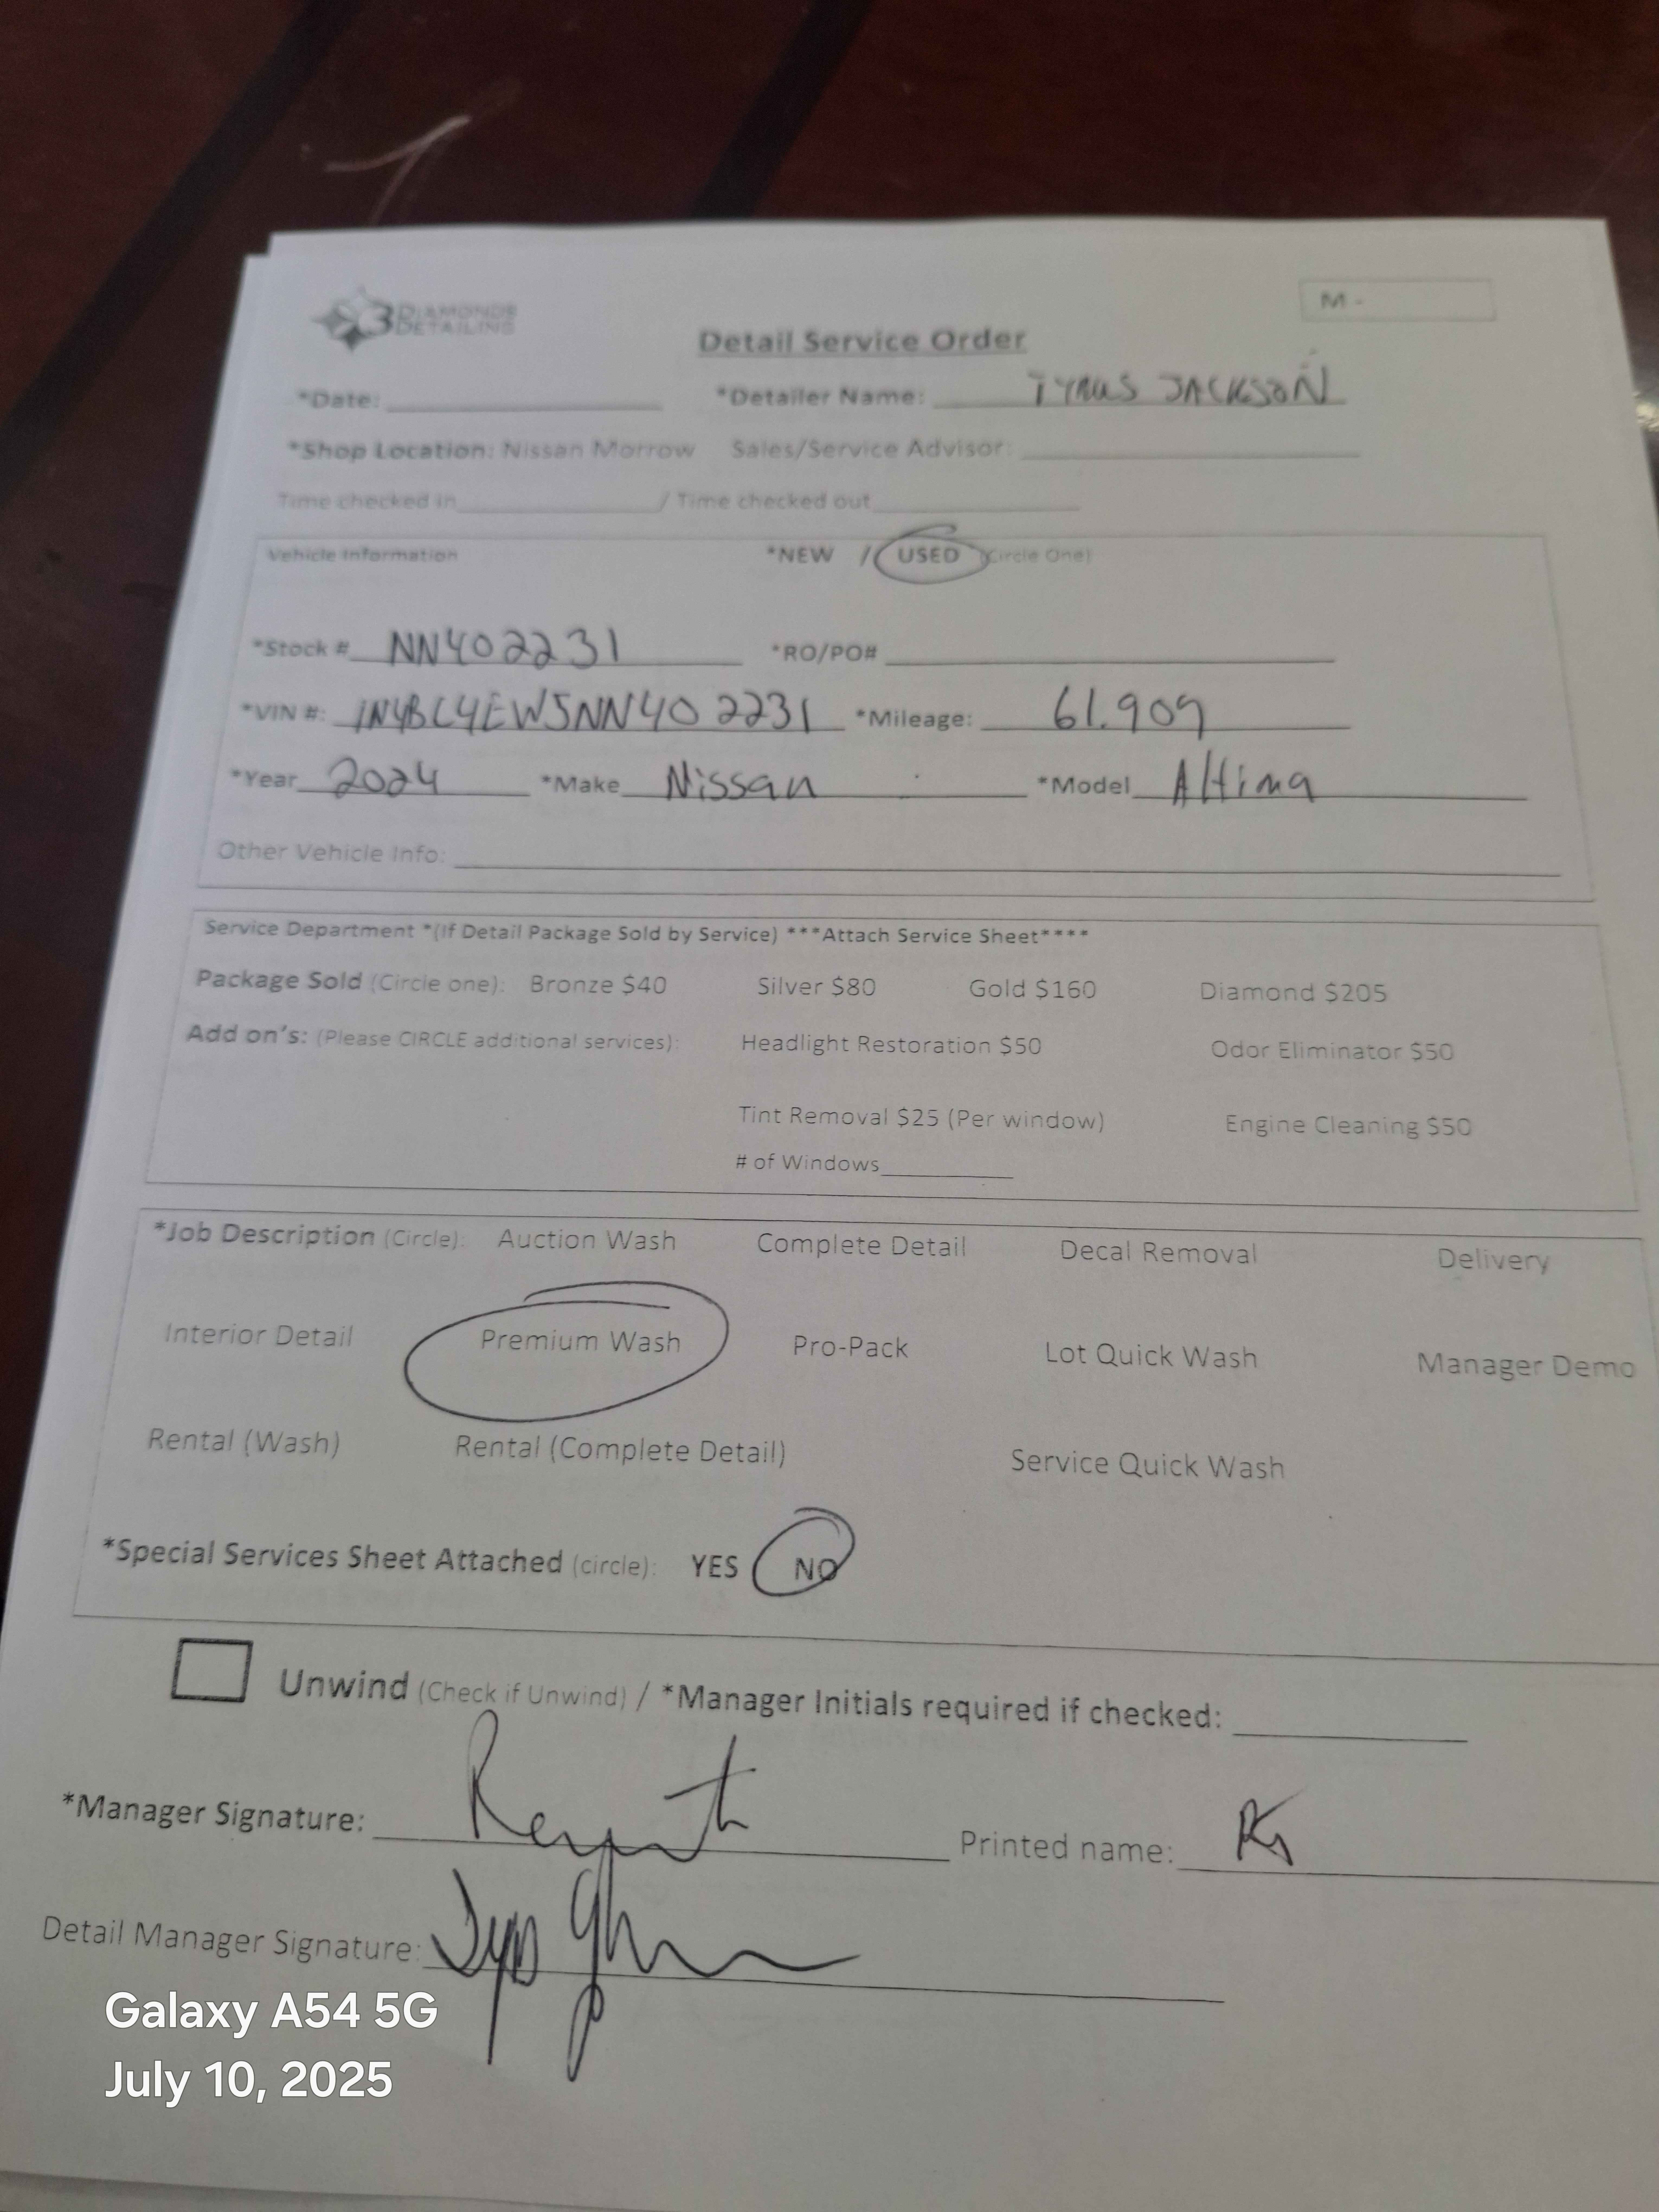 3 DIAMONDS
DETAILING
M -
Detail Service Order
*Date: *Detailer Name: TYRUS JACKSON
*Shop Location: Nissan Morrow Sales/Service Advisor:
Time checked in / Time checked out
Vehicle Information *NEW / USED (Circle One)
*Stock # NN402231 *RO/PO#
*VIN #: 1N4BL4EW5NN40 2231 *Mileage: 61.909
*Year 2024 *Make Nissan *Model Altima
Other Vehicle Info:
Service Department *(If Detail Package Sold by Service) ***Attach Service Sheet****
Package Sold (Circle one): Bronze $40 Silver $80 Gold $160 Diamond $205
Add on's: (Please CIRCLE additional services): Headlight Restoration $50 Odor Eliminator $50
Tint Removal $25 (Per window) Engine Cleaning $50
# of Windows
*Job Description (Circle): Auction Wash Complete Detail Decal Removal Delivery
Interior Detail Premium Wash Pro-Pack Lot Quick Wash Manager Demo
Rental (Wash) Rental (Complete Detail) Service Quick Wash
*Special Services Sheet Attached (circle): YES NO
Unwind (Check if Unwind) / *Manager Initials required if checked:
*Manager Signature: Printed name:
Detail Manager Signature:
Galaxy A54 5G
July 10, 2025